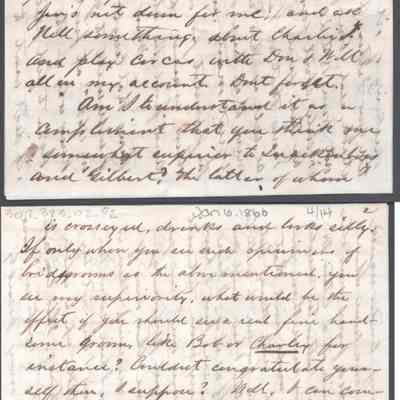 not down for me, and ask
Nell something about Charley
and play circus with Dm & Will
all on my account. Dont forget.
Am I to understand it as a
compliment that you think me
somewhat superior to
and Gilbert? The latter of whom
Jan 6. 1860 4/14 2
is crosseyed, drinks and looks silly.
If only when you see such specimens of
bridegrooms as the above mentioned, you
see my superiority, what would be the
effect if you should see a real fine hand-
some groom, like Bob or Charley for
instance? Couldn't congratulate your-
self then, I suppose? Well, I can com-